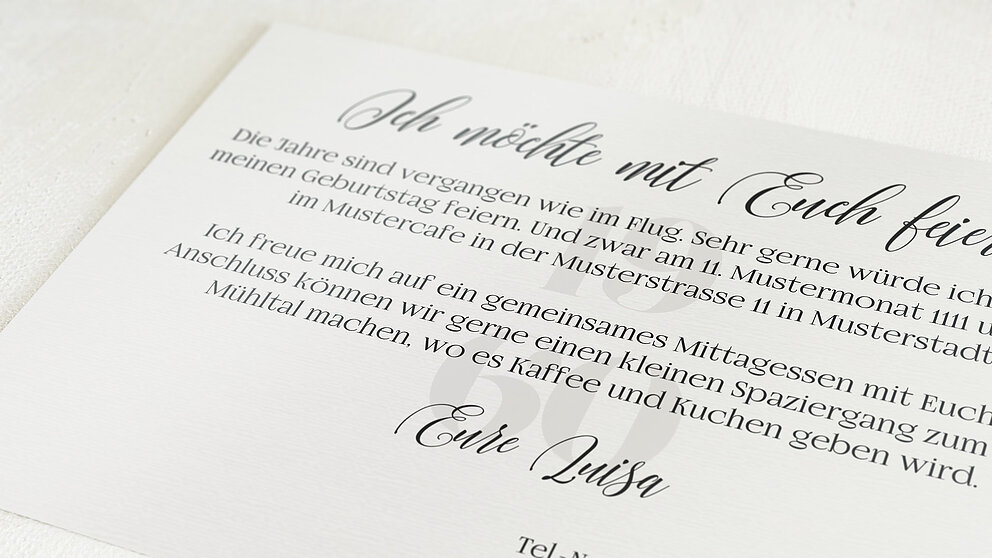 Ich möchte mit Euch feier
Die Jahre sind vergangen wie im Flug. Sehr gerne würde ich
meinen Geburtstag feiern. Und zwar am 11. Mustermonat 1111 u
im Mustercafe in der Musterstrasse 11 in Musterstadt
Ich freue mich auf ein gemeinsames Mittagessen mit Euch
Anschluss können wir gerne einen kleinen Spaziergang zum
Mühltal machen, wo es Kaffee und Kuchen geben wird.
19
60
Eure Luisa
Tel.-N